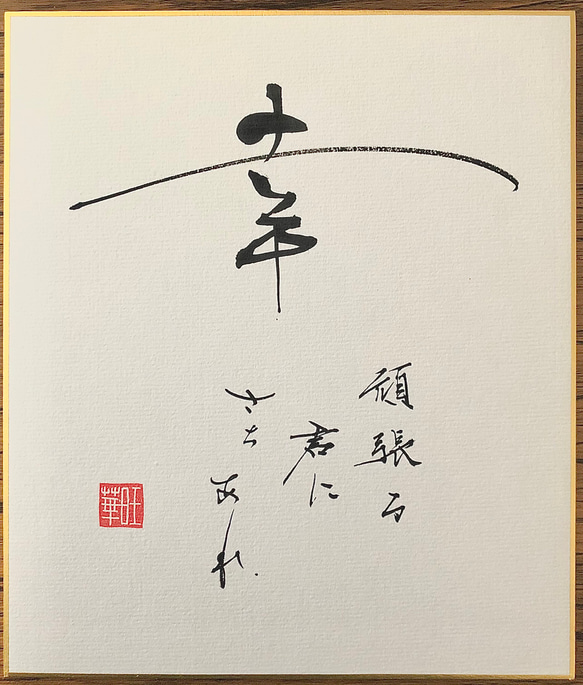 幸
頑張る
君に
さち
あれ
旺華